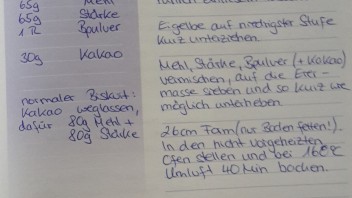 65g Mehl
65g Stärke
1 TL Bpulver
30g Kakao
normaler Biskuit:
Kakao weglassen,
dafür 80g Mehl +
80g Stärke
Eigelbe auf niedrigster Stufe
kurz unterziehen.
Mehl, Stärke, Bpulver (+ Kakao)
vermischen, auf die Eier-
masse sieben und so kurz wie
möglich unterheben
26cm Form (nur Boden fetten!)
In den nicht vorgeheizten
Ofen stellen und bei 160°C
Umluft 40 Min backen.